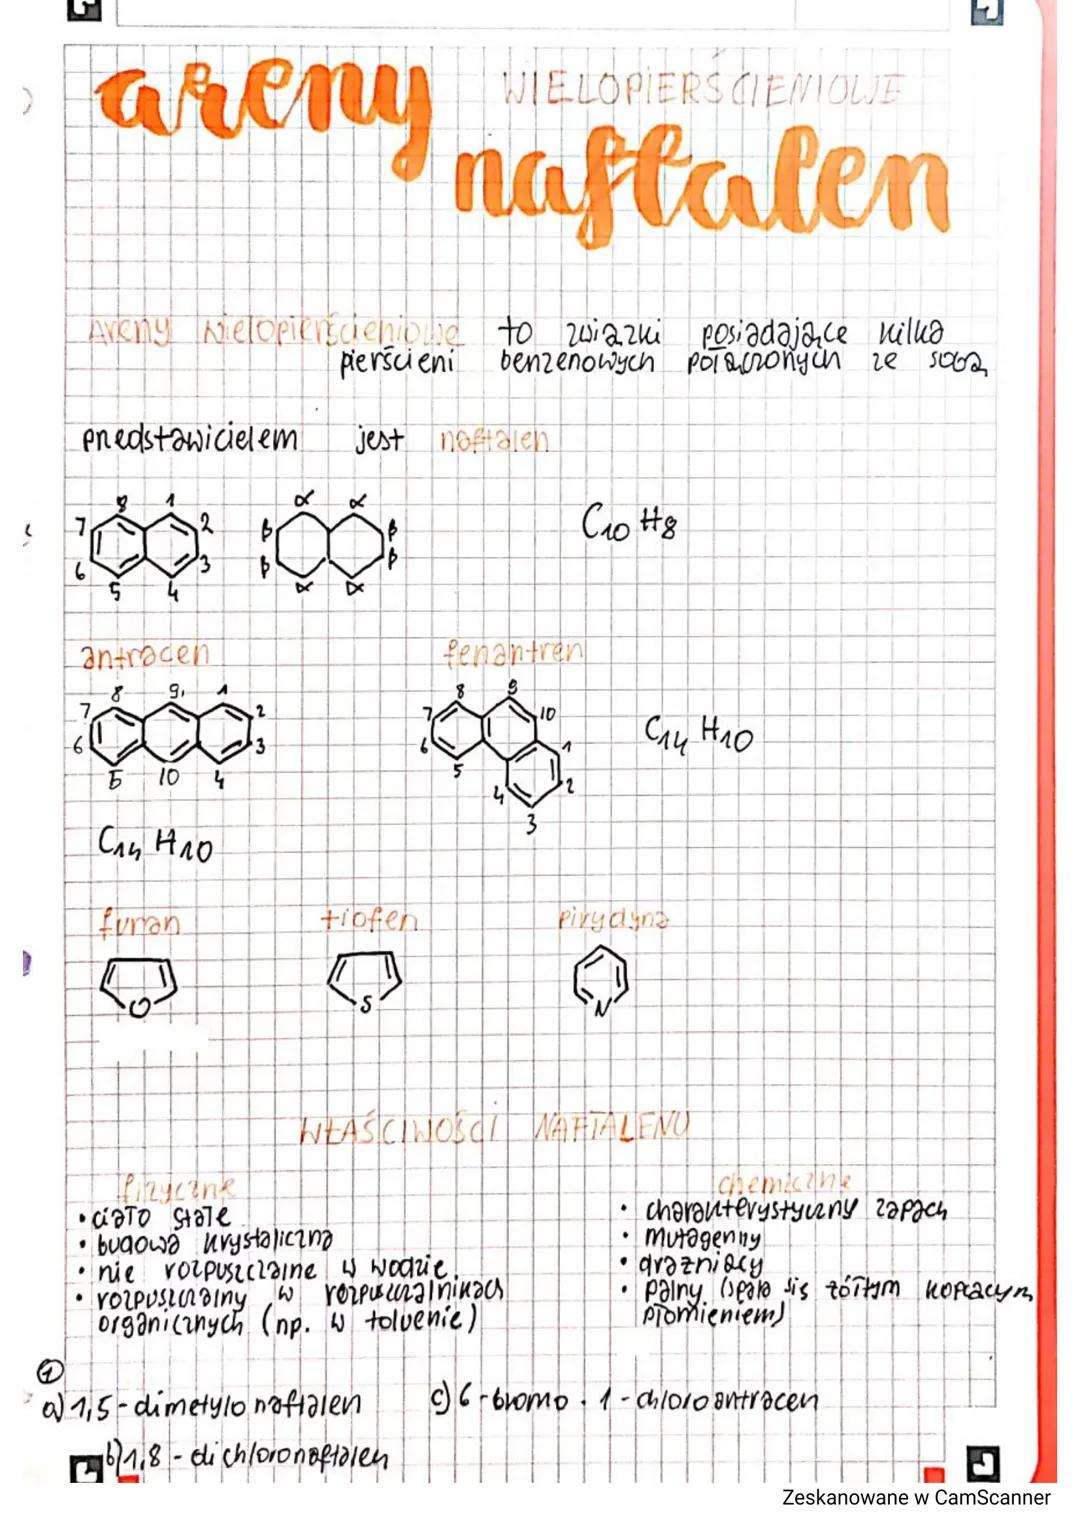 areny WIELOPIERŚCIENIOWE
naftalen
Areny wielopierścieniowe to związki posiadające kilka
pierścieni benzenowych połączonych ze sobą
przedstawicielem jest naftalen
8 1
7 2
6 3
5 4
α α
β β
β β
α α
C10 H8
antracen fenantren
8 9 1
7 2
6 3
5 10 4
8 9
7 10
6 1
5 2
4
3
C14 H10
C14 H10
furan tiofen pirydyna
O S N
WŁAŚCIWOŚCI NAFTALENU
fizyczne
• ciało stałe
• budowa krystaliczna
• nie rozpuszczalne w wodzie
• rozpuszczalny w rozpuszczalnikach
organicznych (np. w toluenie)
chemiczne
• charakterystyczny zapach
• mutagenny
• drażniący
• palny (spala się żółtym kopcącym
płomieniem)
1
a) 1,5-dimetylonaftalen c) 6-bromo-1-chloroantracen
b) 1,8-dichloronaftalen
Zeskanowane w CamScanner